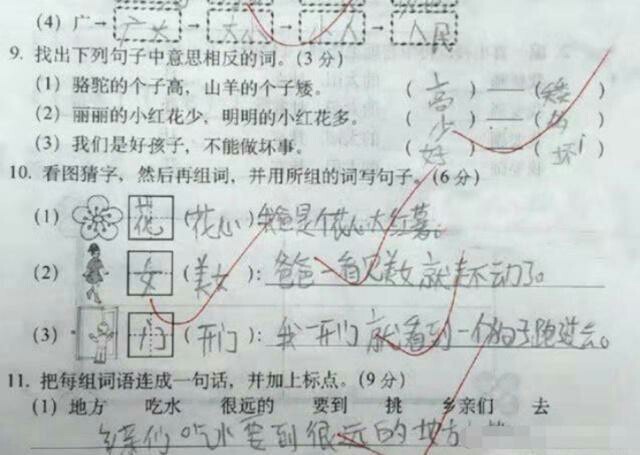 (4) 广→ 广大 → 大小 → 小人 → 人民
9. 找出下列句子中意思相反的词。(3分)
(1) 骆驼的个子高,山羊的个子矮。 (高)——(矮)
(2) 丽丽的小红花少,明明的小红花多。 (少)——(多)
(3) 我们是好孩子,不能做坏事。 (好)——(坏)
10. 看图猜字,然后再组词,并用所组的词写句子。(6分)
(1) 花 (花心) 我爸是个花心大红薯。
(2) 女 (美女): 爸爸一看见美女就走不动了。
(3) 门 (开门): 我一开门就看到一个狗子跑过去。
11. 把每组词语连成一句话,并加上标点。(9分)
(1) 地方 吃水 很远的 要到 挑 乡亲们 去
乡亲们吃水要到很远的地方